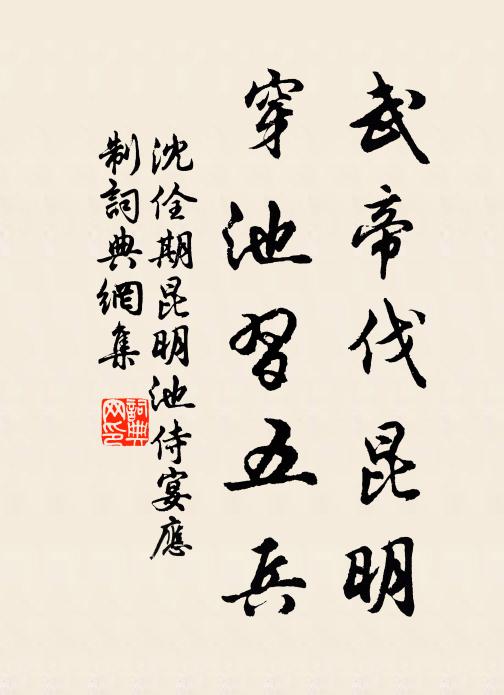 武帝伐昆明
穿池習五兵
沈佺期昆明池侍宴應
制詞典網集
詞典
网印